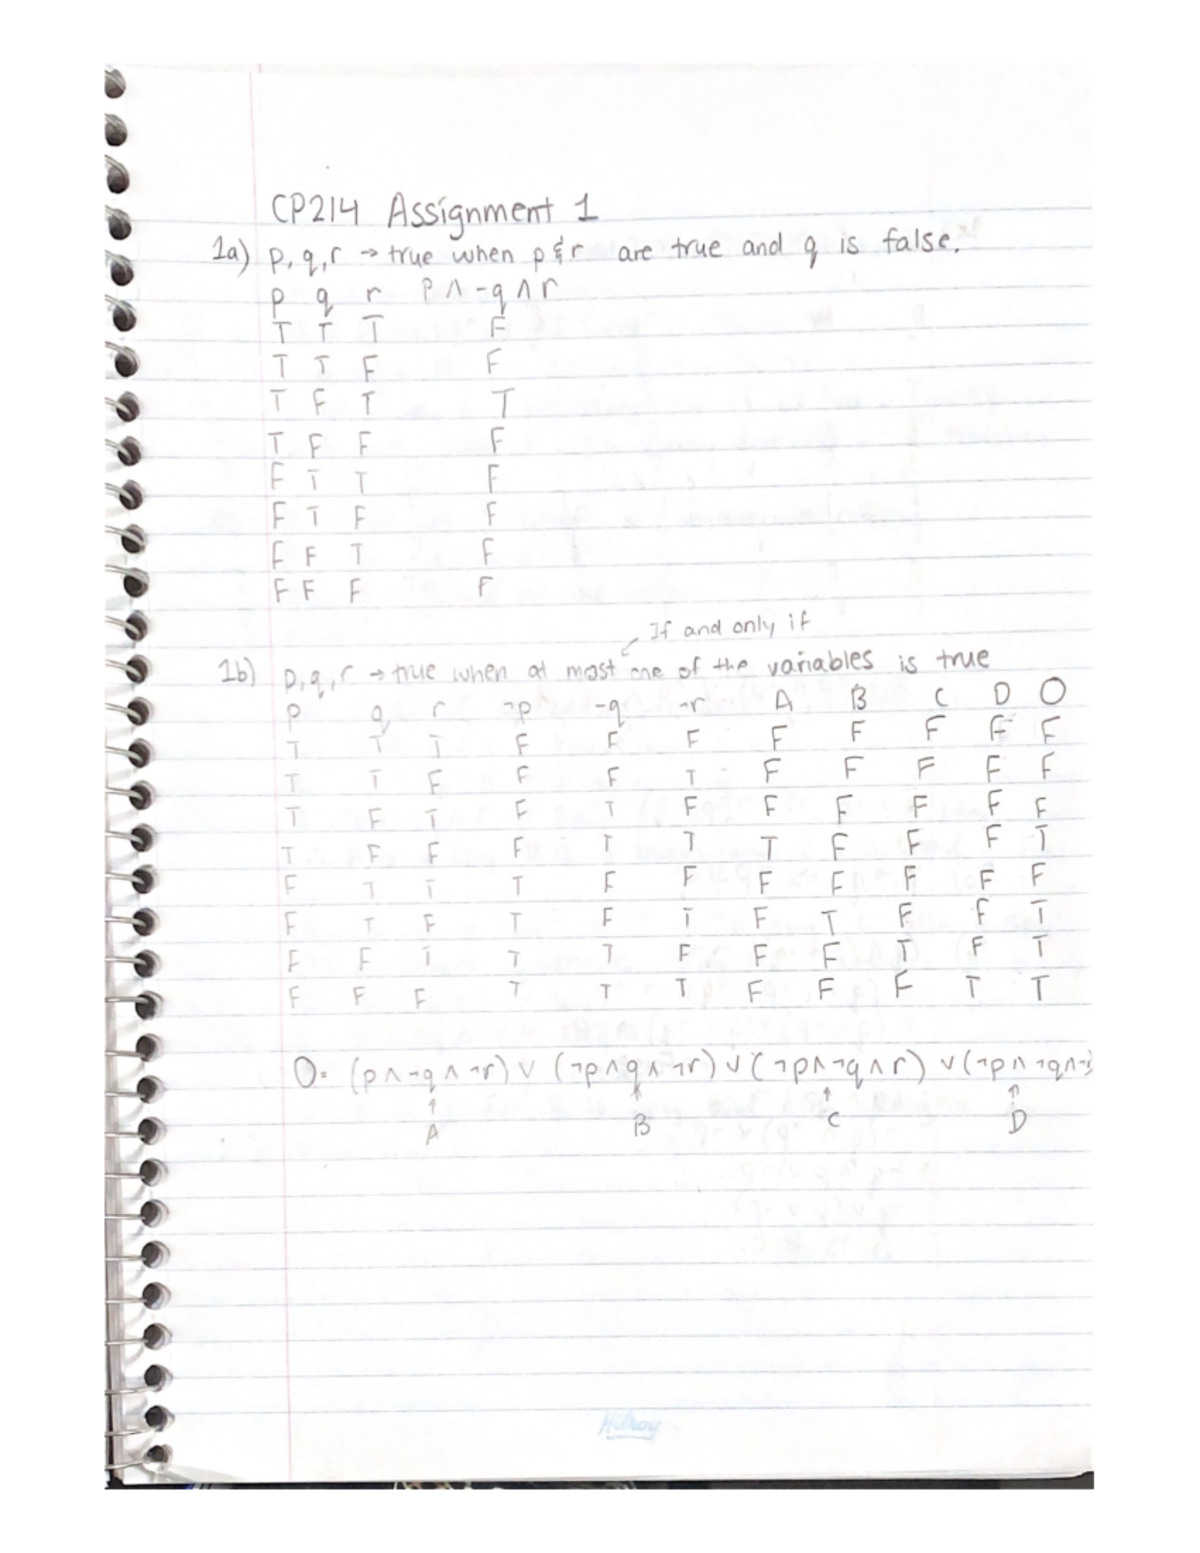 CP214 Assignment 1
1a) p, q, r → true when p & r are true and q is false.
p q r p ∧ ¬q ∧ r
T T T F
T T F F
T F T T
T F F F
F T T F
F T F F
F F T F
F F F F
If and only if
1b) p, q, r → true when at most one of the variables is true
p q r ¬p ¬q ¬r A B C D O
T T T F F F F F F F F
T T F F F T F F F F F
T F T F T F F F F F F
T F F F T T T F F F T
F T T T F F F F F F F
F T F T F T F T F F T
F F T T T F F F T F T
F F F T T T F F F T T
O= (p ∧ ¬q ∧ ¬r) ∨ (¬p ∧ q ∧ ¬r) ∨ (¬p ∧ ¬q ∧ r) ∨ (¬p ∧ ¬q ∧ ¬
↑ ↑ ↑ ↑
A B C D
Hilroy